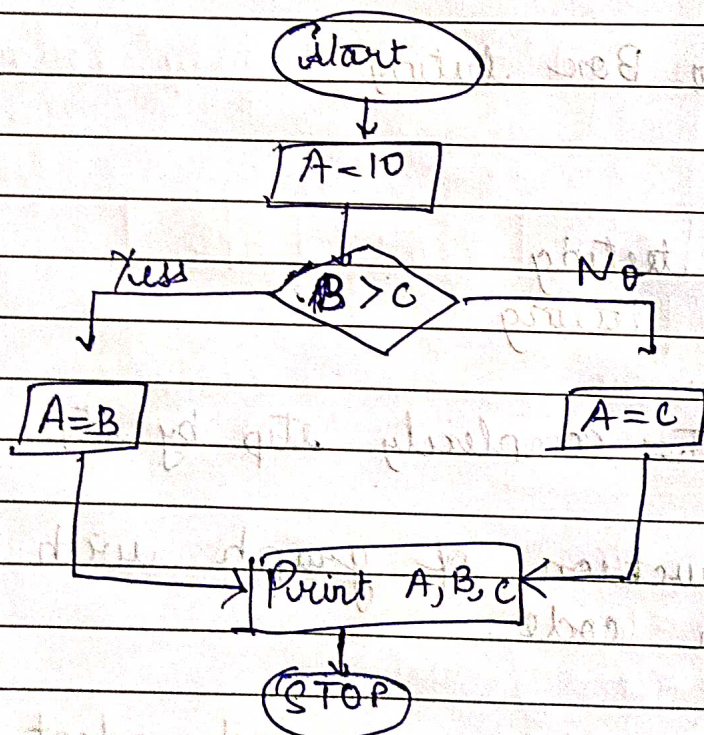 Start
A = 10
Yess
B > C
No
A=B
A=C
Print A, B, C
STOP